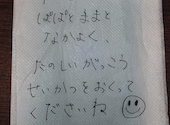 ぱぱとままと
なかよく、
たのしいがっこう
せいかつをおくって
くださいね